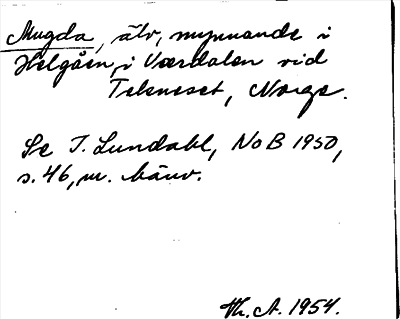 Mugda, älv, mynnande i
Helgåen, i Værdalen vid
Tekneset, Norge.
Se I. Lundahl, NoB 1950,
s. 46, m. hänv.
Th. A. 1954.